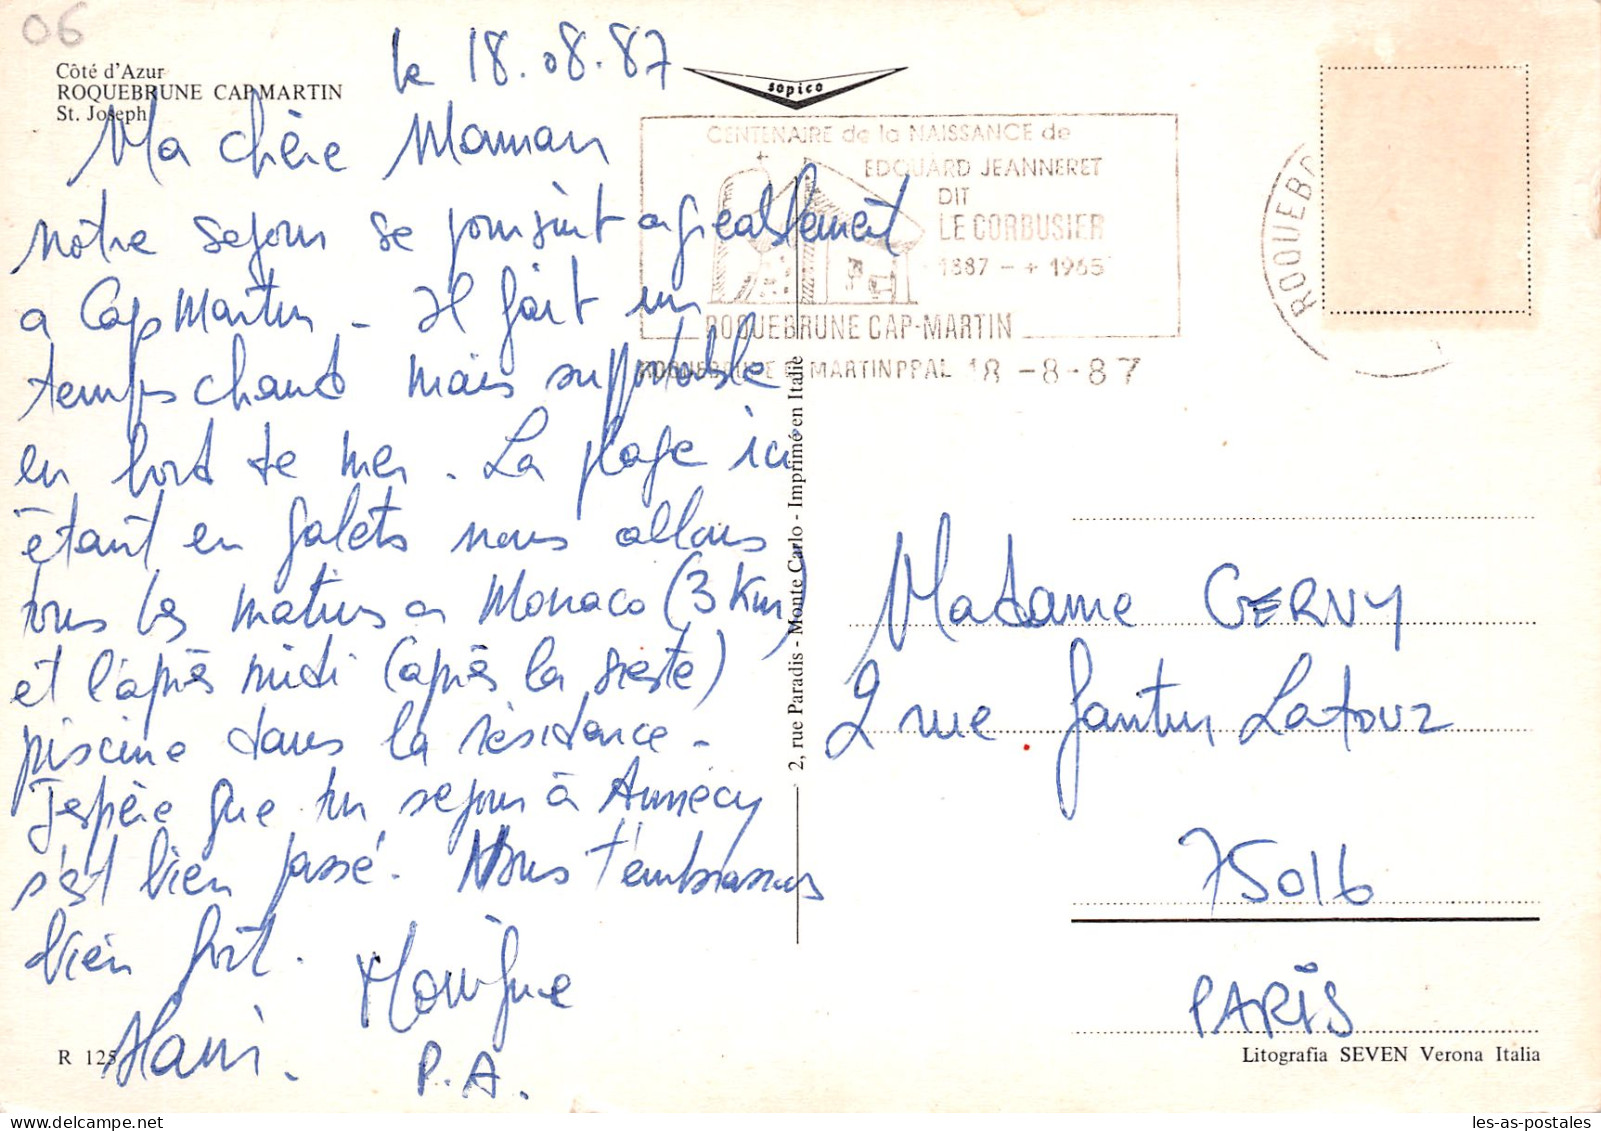 06
Côté d'Azur
ROQUEBRUNE CAP MARTIN
St. Joseph
le 18.08.87
Ma chère Maman
notre sejour se poursuit agreablement
a Cap Martin - Il fait un
temps chaud mais supportable
en bord de mer. La plage ici
étant en galets nous allons
tous les matins a Monaco (3 Km)
et l'après midi (après la sieste)
piscine dans la résidence -
J'espère que ton sejour à Annecy
s'est bien passé. Nous t'embrassons
bien fort.
Monique
Alain.
P.A.
R 125
sopico
CENTENAIRE de la NAISSANCE de
EDOUARD JEANNERET
DIT
LE CORBUSIER
1887 - + 1965
ROQUEBRUNE CAP-MARTIN
MARTIN PPAL 18-8-87
ROQUEBR
2, rue Paradis - Monte Carlo - Imprimé en Italie
Madame CERNY
2 rue Fantin Latour
75016
PARIS
Litografia SEVEN Verona Italia
les-as-postales